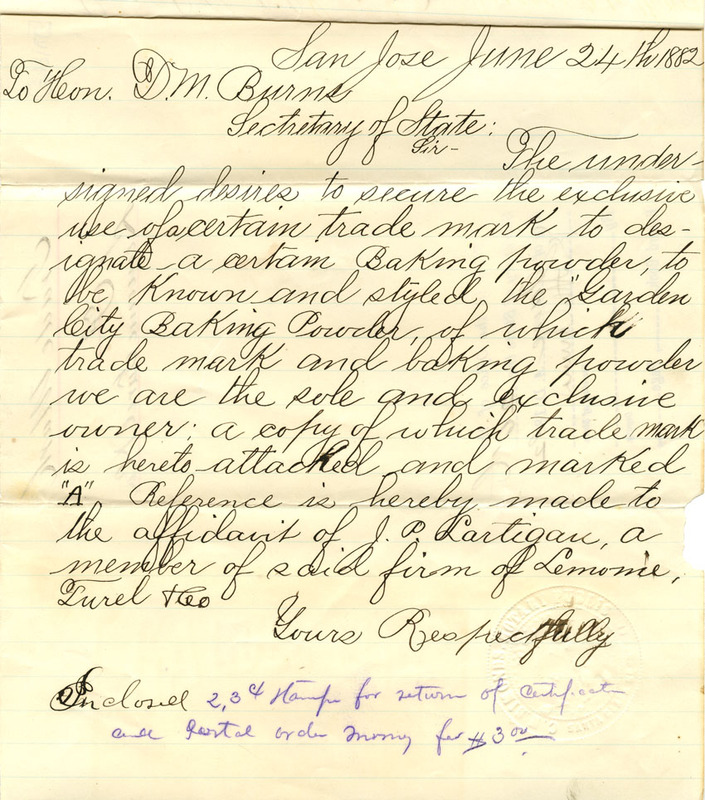 San Jose June 24th 1882
To Hon. D. M. Burns
Secretary of State:
Sir- The under-
signed desires to secure the exclusive
use of a certain trade mark to des-
ignate a certain Baking powder, to
be known and styled the "Garden
City Baking Powder, of which
trade mark and baking powder
we are the sole and exclusive
owner; a copy of which trade mark
is hereto attached and marked
"A". Reference is hereby made to
the affidavit of J. P. Lartigau, a
member of said firm of Lemoine,
Turel & Co
Yours Respectfully
Inclosed 2, 3 ¢ stamps for return of certificate
and Postal order money for $3 00